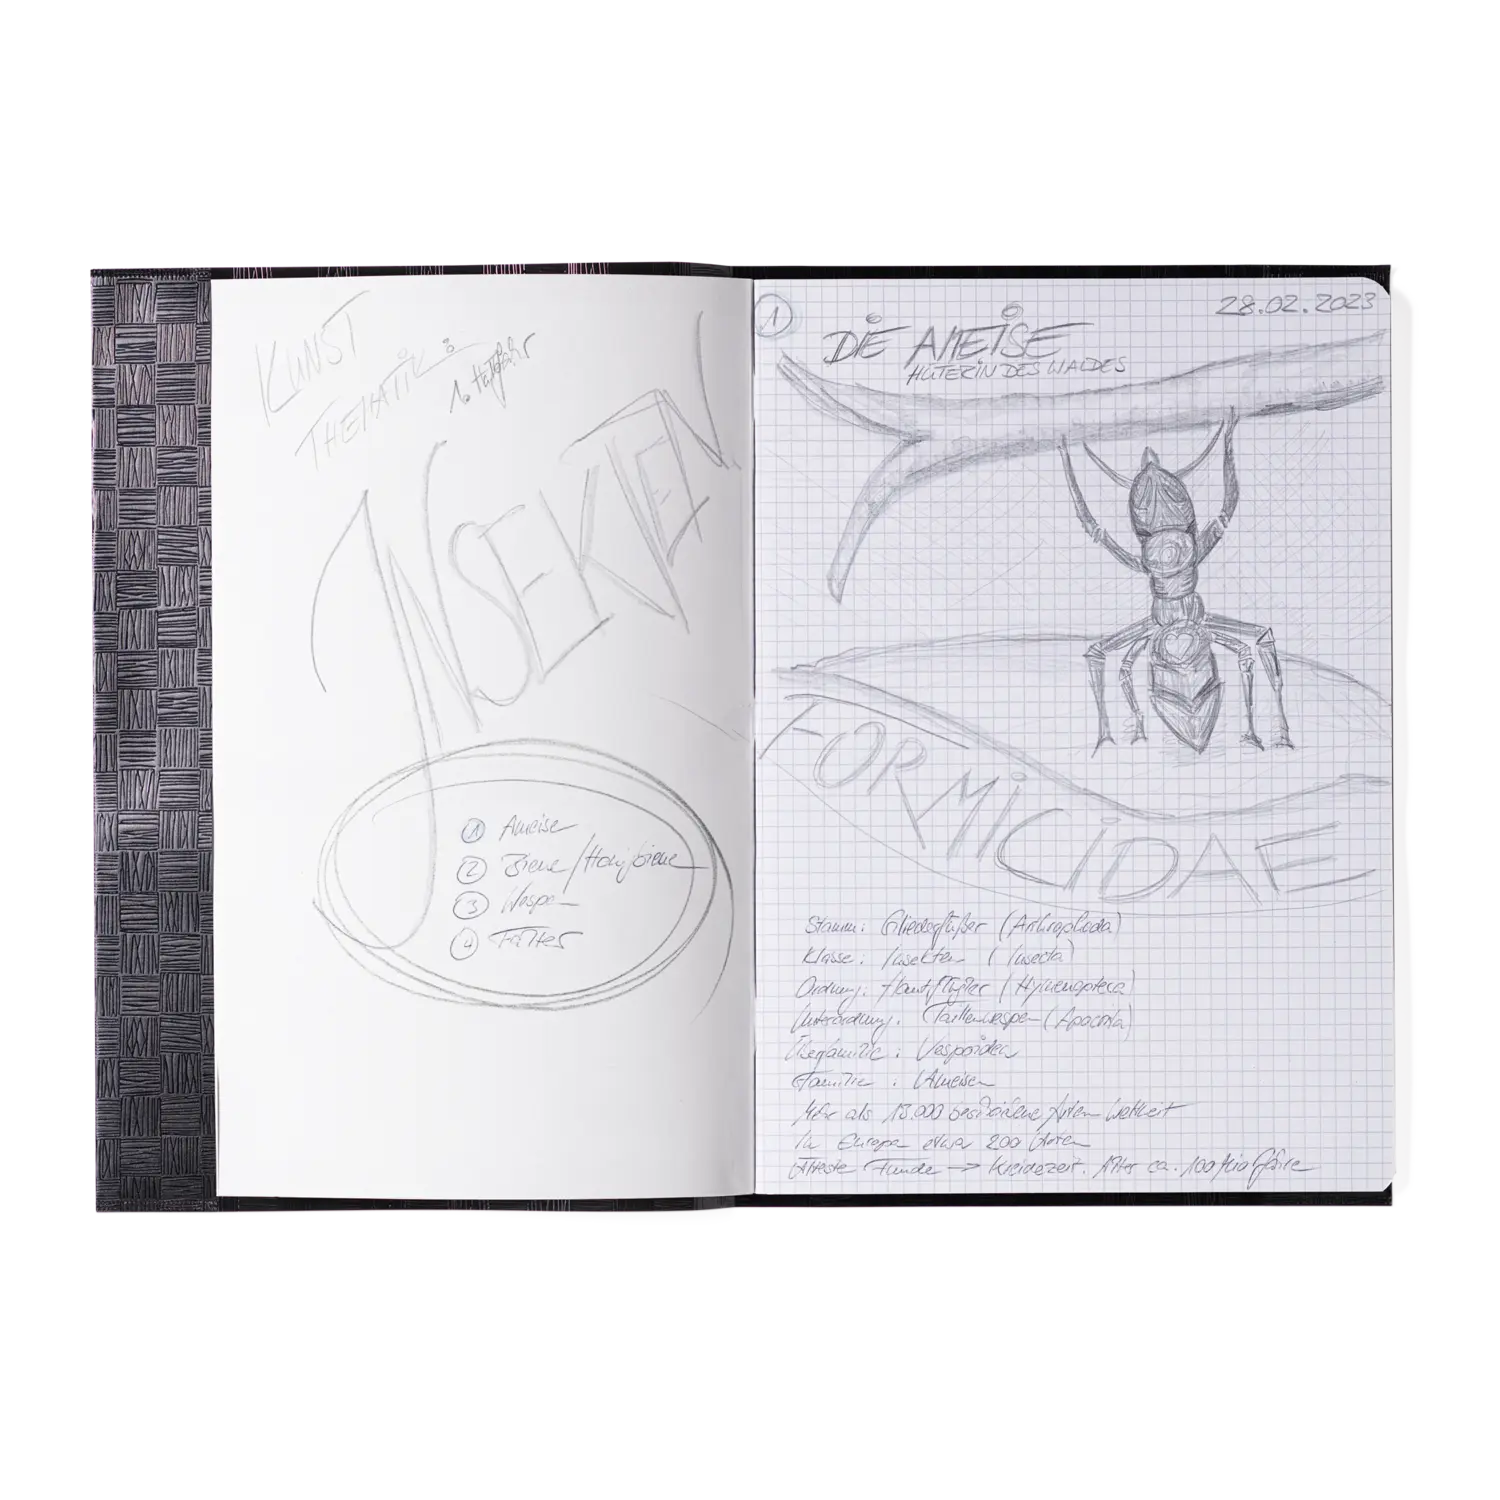 KUNST
THEMATIK: 1. Halbjahr
INSEKTEN
1 Ameise
2 Biene/Honigbiene
3 Wespe
4 Falter
1
28.02.2023
DIE AMEISE
HÜTERIN DES WALDES
FORMICIDAE
Stamm: Gliederfüßer (Arthropoda)
Klasse: Insekten (Insecta)
Ordnung: Hautflügler (Hymenoptera)
Unterordnung: Taillenwespen (Apocrita)
Überfamilie: Vespoidea
Familie: Ameisen
Mehr als 13.000 beschriebene Arten weltweit
In Europa etwa 200 Arten
Älteste Funde -> Kreidezeit. Alter ca. 100 Mio Jahre